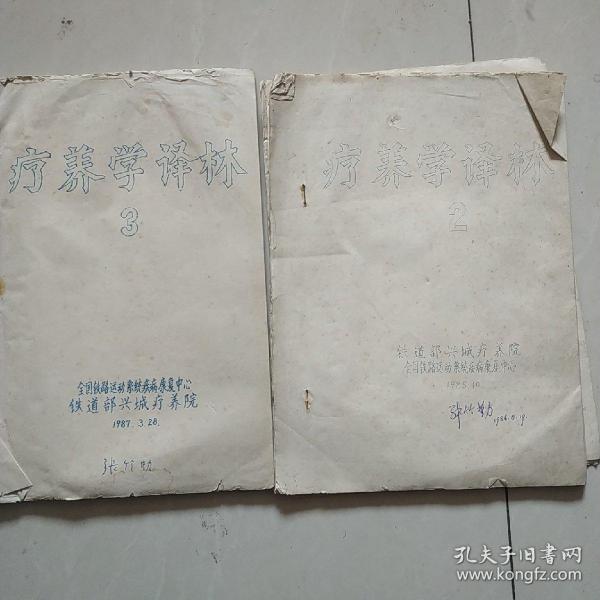 疗养学译林
3
全国铁路运动系统疾病康复中心
铁道部兴城疗养院
1987.3.28.
疗养学译林
2
铁道部兴城疗养院
全国铁路运动系统疾病康复中心
孔夫子旧书网
www.kongfz.com